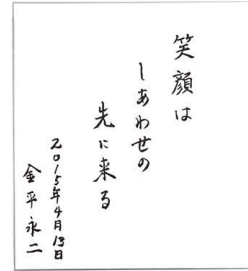 笑顔は
しあわせの
先に来る
2015年4月13日
金平永二